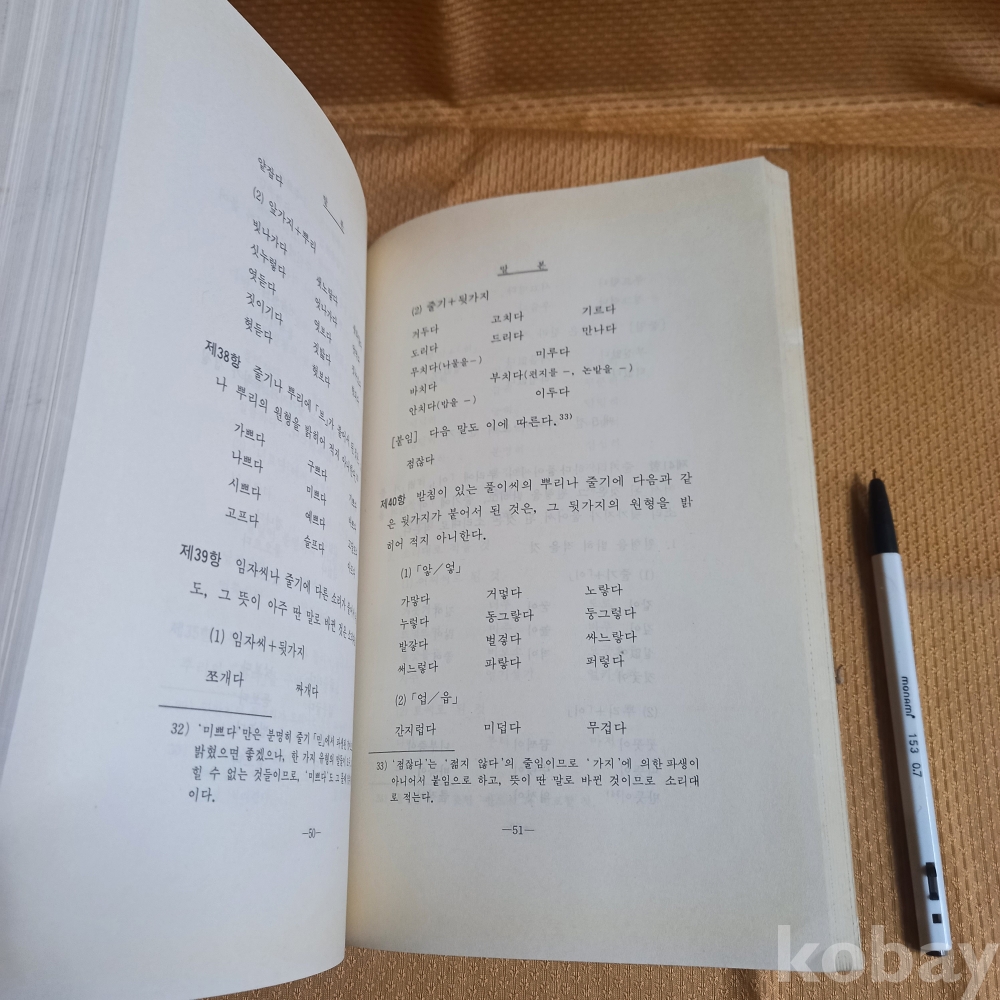 얕잡다
(2) 앞가지+뿌리
빗나가다
싯누렇다 샛노랗다
엿듣다 엇나가다
짓이기다 엿보다
헛듣다 짓밟다
헛보다
제38항 줄기나 뿌리에 「브」가 붙어서 된
나 뿌리의 원형을 밝히어 적지 아니한다.
가쁘다 구쁘다
나쁘다 미쁘다
시쁘다 예쁘다
고프다 슬프다
제39항 임자씨나 줄기에 다른 소리가
도, 그 뜻이 아주 딴 말로 바뀐 것은
(1) 임자씨+뒷가지
쪼개다 짜개다
32) ‘미쁘다’만은 분명히 줄기 「믿」에서
밝혔으면 좋겠으나, 한 가지 유형의 말들이
힐 수 없는 것들이므로, ‘미쁘다’도 그
이다.
—50—
말 본
(2) 줄기+뒷가지
꺼두다 고치다 기르다
도리다 드리다 만나다
무치다(나물을−) 미루다
바치다 부치다(편지를 −, 논밭을 −)
안치다(밥을 −) 이루다
[붙임] 다음 말도 이에 따른다.33)
점잖다
제40항 받침이 있는 풀이씨의 뿌리나 줄기에 다음과 같
은 뒷가지가 붙어서 된 것은, 그 뒷가지의 원형을 밝
히어 적지 아니한다.
(1) 「앟/엏」
가맣다 거멓다 노랗다
누렇다 동그랗다 둥그렇다
발갛다 벌겋다 싸느랗다
써느렇다 파랗다 퍼렇다
(2) 「업/읍」
간지럽다 미덥다 무겁다
33) ‘점잖다’는 ‘젊지 않다’의 줄임이므로 ‘가지’에 의한 파생이
아니어서 붙임으로 하고, 뜻이 딴 말로 바뀐 것이므로 소리대
로 적는다.
—51—
monami 153 0.7
kobay